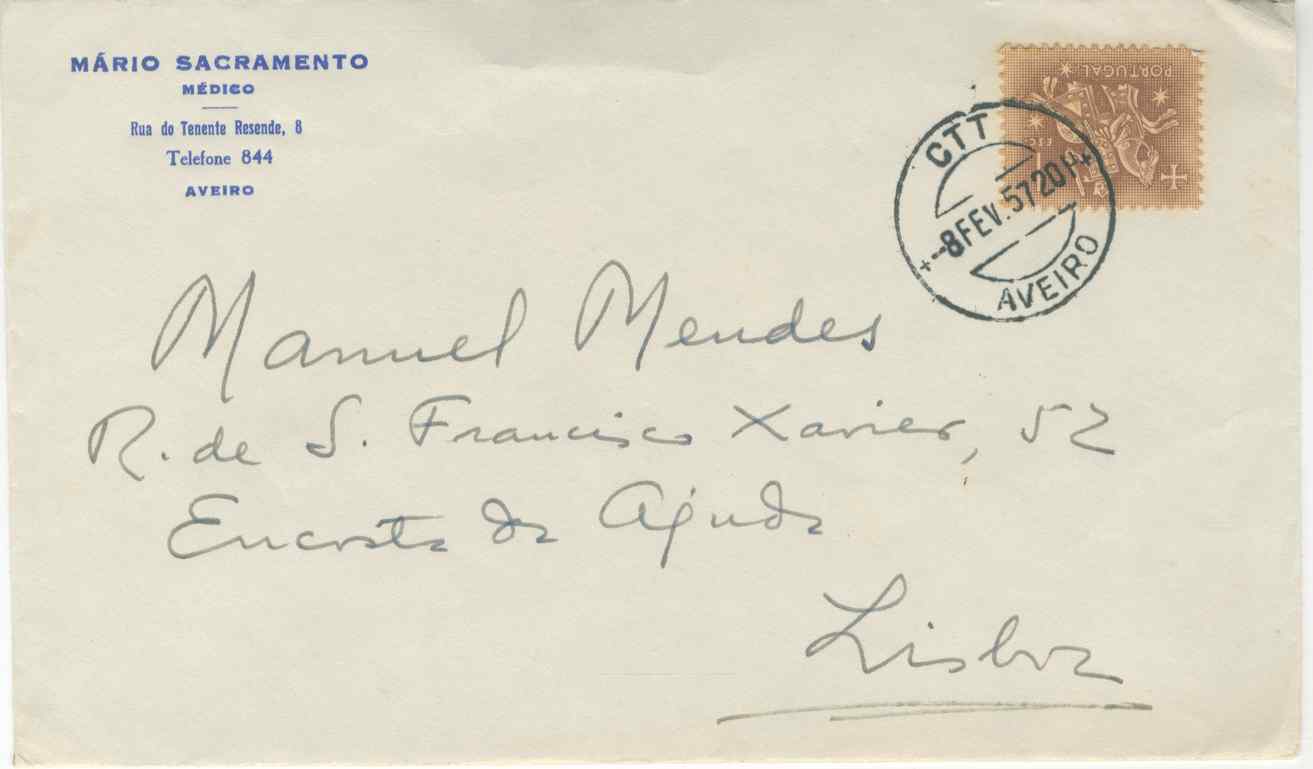 MÁRIO SACRAMENTO
MÉDICO
Rua do Tenente Resende, 8
Telefone 844
AVEIRO
PORTUGAL
CTT
-8FEV.5720H
AVEIRO
Manuel Mendes
R. de S. Francisco Xavier, 52
Encosta da Ajuda
Lisboa